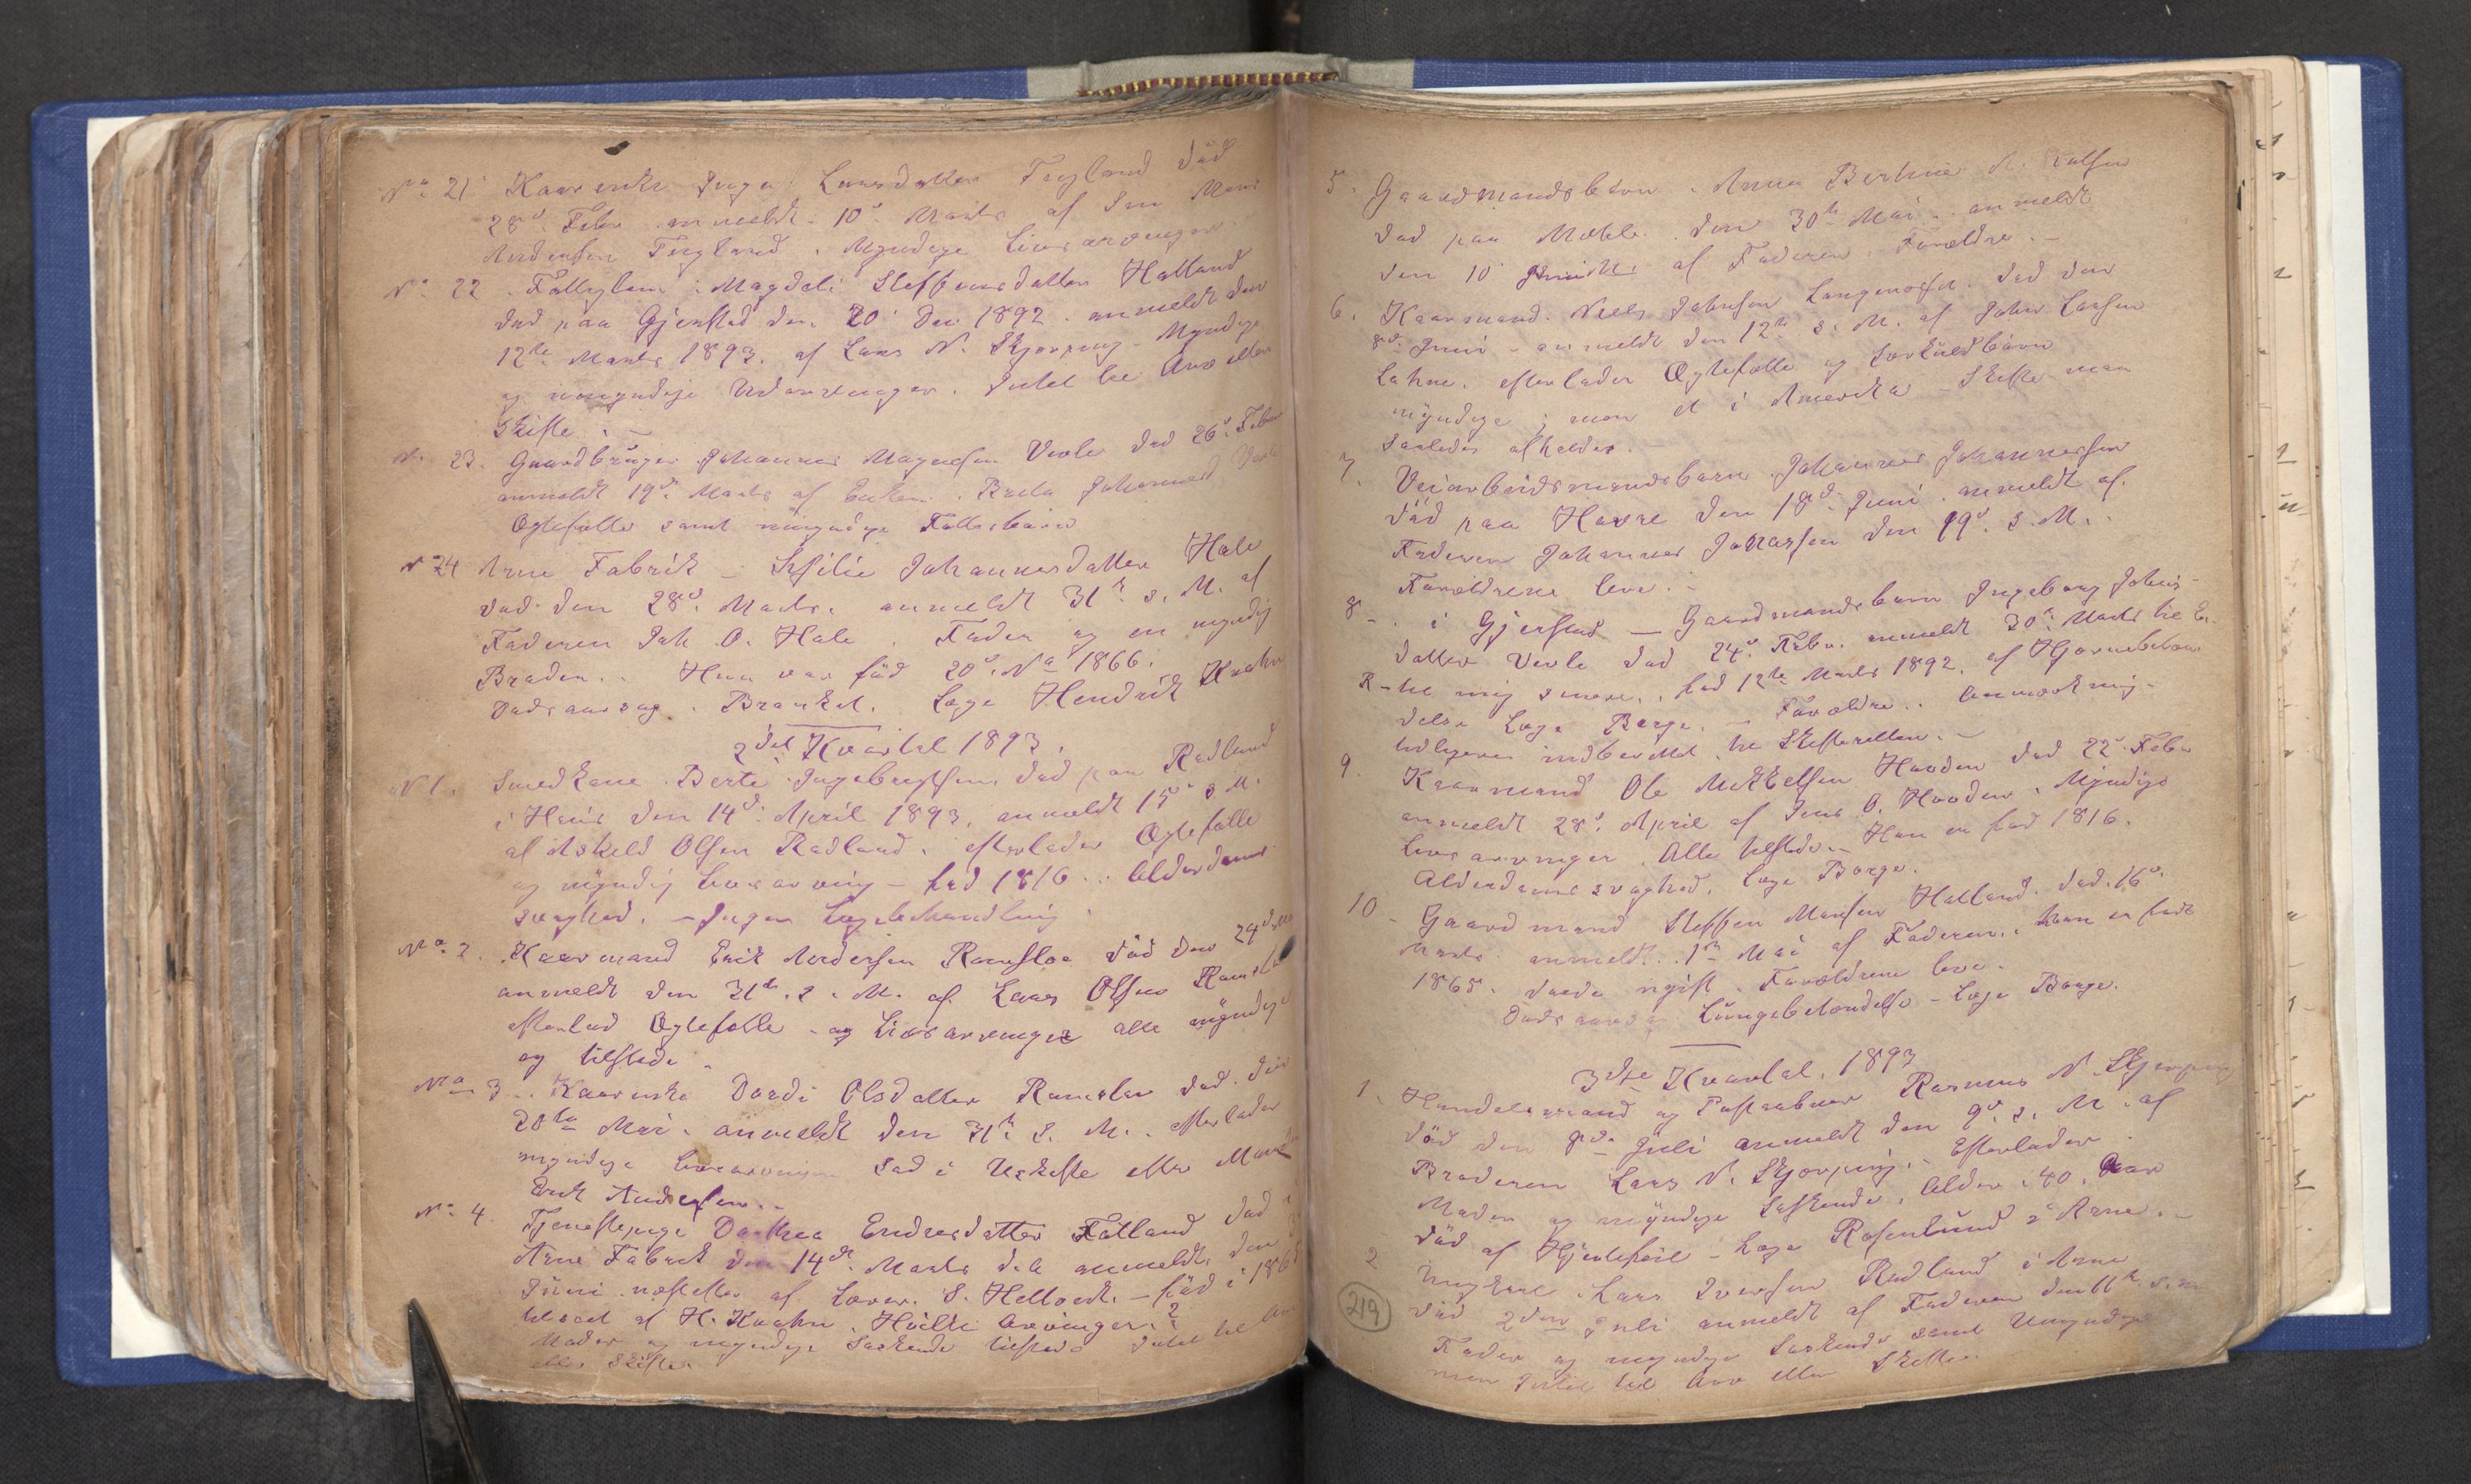 No 21 Kaarenke Inga Larsdatter Teigland död
28d. Febr. anmeldt 10d. Marts af Søn Mons
Andersen Teigland. Myndige Livsarvinger
No 22. Fattiglem: Magdeli Steffensdatter Hatland
död paa Gjerstad den 20 Dec 1892. anmeldt den
12te Marts 1893. af Lars N. Skjerping - Myndige
og umyndige Udarvinger. Intet til Arv eller
Skifte. -
No 23. Gaardbruger Johannes Magnesen Verle död 26d. Febr
anmeldt 19d. Marts af Enken. Brita Johannesd. Verle
Ægtefælle samt umyndige Fællesbörn
No 24 Arne Fabrik - Johannesdatter Hole
död den 28d. Marts. anmeldt 31te s. M. af
Faderen Joh. O. Hole. Fader og en myndig
Broder.. Hun var föd 20d. 1866.
Dødsaarsag. Læge Hendrik Krohn
2det Kvartal 1893.
No 1. Smedkone. Berte Ingebrigtsen, död paa Radland
i Haus den 14d. April 1893, anmeldt 15d s. M.
af Askeld Olsen Radland. efterlader Ægtefælle
og myndig Livsarving - föd 1816... Alderdoms
svaghed. - Ingen Lægebehandling.
No 2. Kaarmand Erik Andersen Ramsloe död den 24d. Mai
anmeldt den 31te. s. M. af Lars Olsen Ramslo
efterlod Ægtefælle - og Livsarvinger alle myndige
og tilstede.
No 3.. Kaarenke Dordi Olsdatter Ramsloe död. den
20te Mai. anmeldt den 31te s. M.. efterlader
myndige Livsarvinger sad i Uskifte efter Mand
Erik Andersen..
No 4. Tjenestepige Dorthea Endresdatter Fatland död i
Arne Fabrik den 14de Marts anmeldt den
Juni af S. Helland. - föd i 186
af H. Krohn. Hvilke Arvinger?
Moder og myndige Søskende tilstede Intet til Arv
eller Skifte
5. Gaardmandsbarn. Anna Bertine
död paa den 30te Mai. anmeldt
den 10 Juni af Faderen. Forældre. -
6. Kaarmand. Niels Johnsen död den
8de Juni - anmeldt den 12te s. M. af John Larsen
efterlader Ægtefælle og Særkuldbörn
myndige; men et i Amerika Skifte maa
saaledes afholdes.
7. Veiarbeidsmandsbarn Johannes Johannessen
död paa Havre den 18d. Juni. anmeldt af.
Faderen Johannes den 19d. s. M..
Forældrene leve..
8 - . i Gjerstad - Gaardmandsbarn Ingeborg Johns-
datter Verle död 24d. Febr. anmeldt 20d. Marts til
R - til mig senere.. föd 12te Marts 1892. af Hjernebetæn
delse Læge Borge. - Forældre.. Anmærkning
tidligere indberettet til Skifteretten. -
9. Kaarmand Ole Mikkelsen Havden död 22d. Febr
anmeldt 28d. April af Jens O. Havden. Myndige
Livsarvinger. Alle tilstede. - Han er föd 1816.
Alderdomssvaghed. Læge Borge.
10 - Gaardmand Steffen Monsen Hatland. död. 16d.
Marts anmeldt. 1ste Mai af Faderen.. han er född
1865. döde ugift. Forældrene leve.
Dødsaarsag Lungebetændelse - Læge Borge.
3die Kvartal. 1893
1. Handelsmand og Postaabner Rasmus N. Skjerping
död den 8de Juli anmeldt den 9d. s. M. af
Broderen Lars N. Skjerping.. efterlader
Moder og myndige Søskende, Alder. 40. Aar
död af Hjertefeil - Læge Rosenlund i Arne. -
2 Ungkarl. Lars Iversen Radland i Arne
död 2den Juli anmeldt af Faderen den s. M
Fader og myndige Søskende samt Umyndige
men Intet til Arv eller Skifte.
219